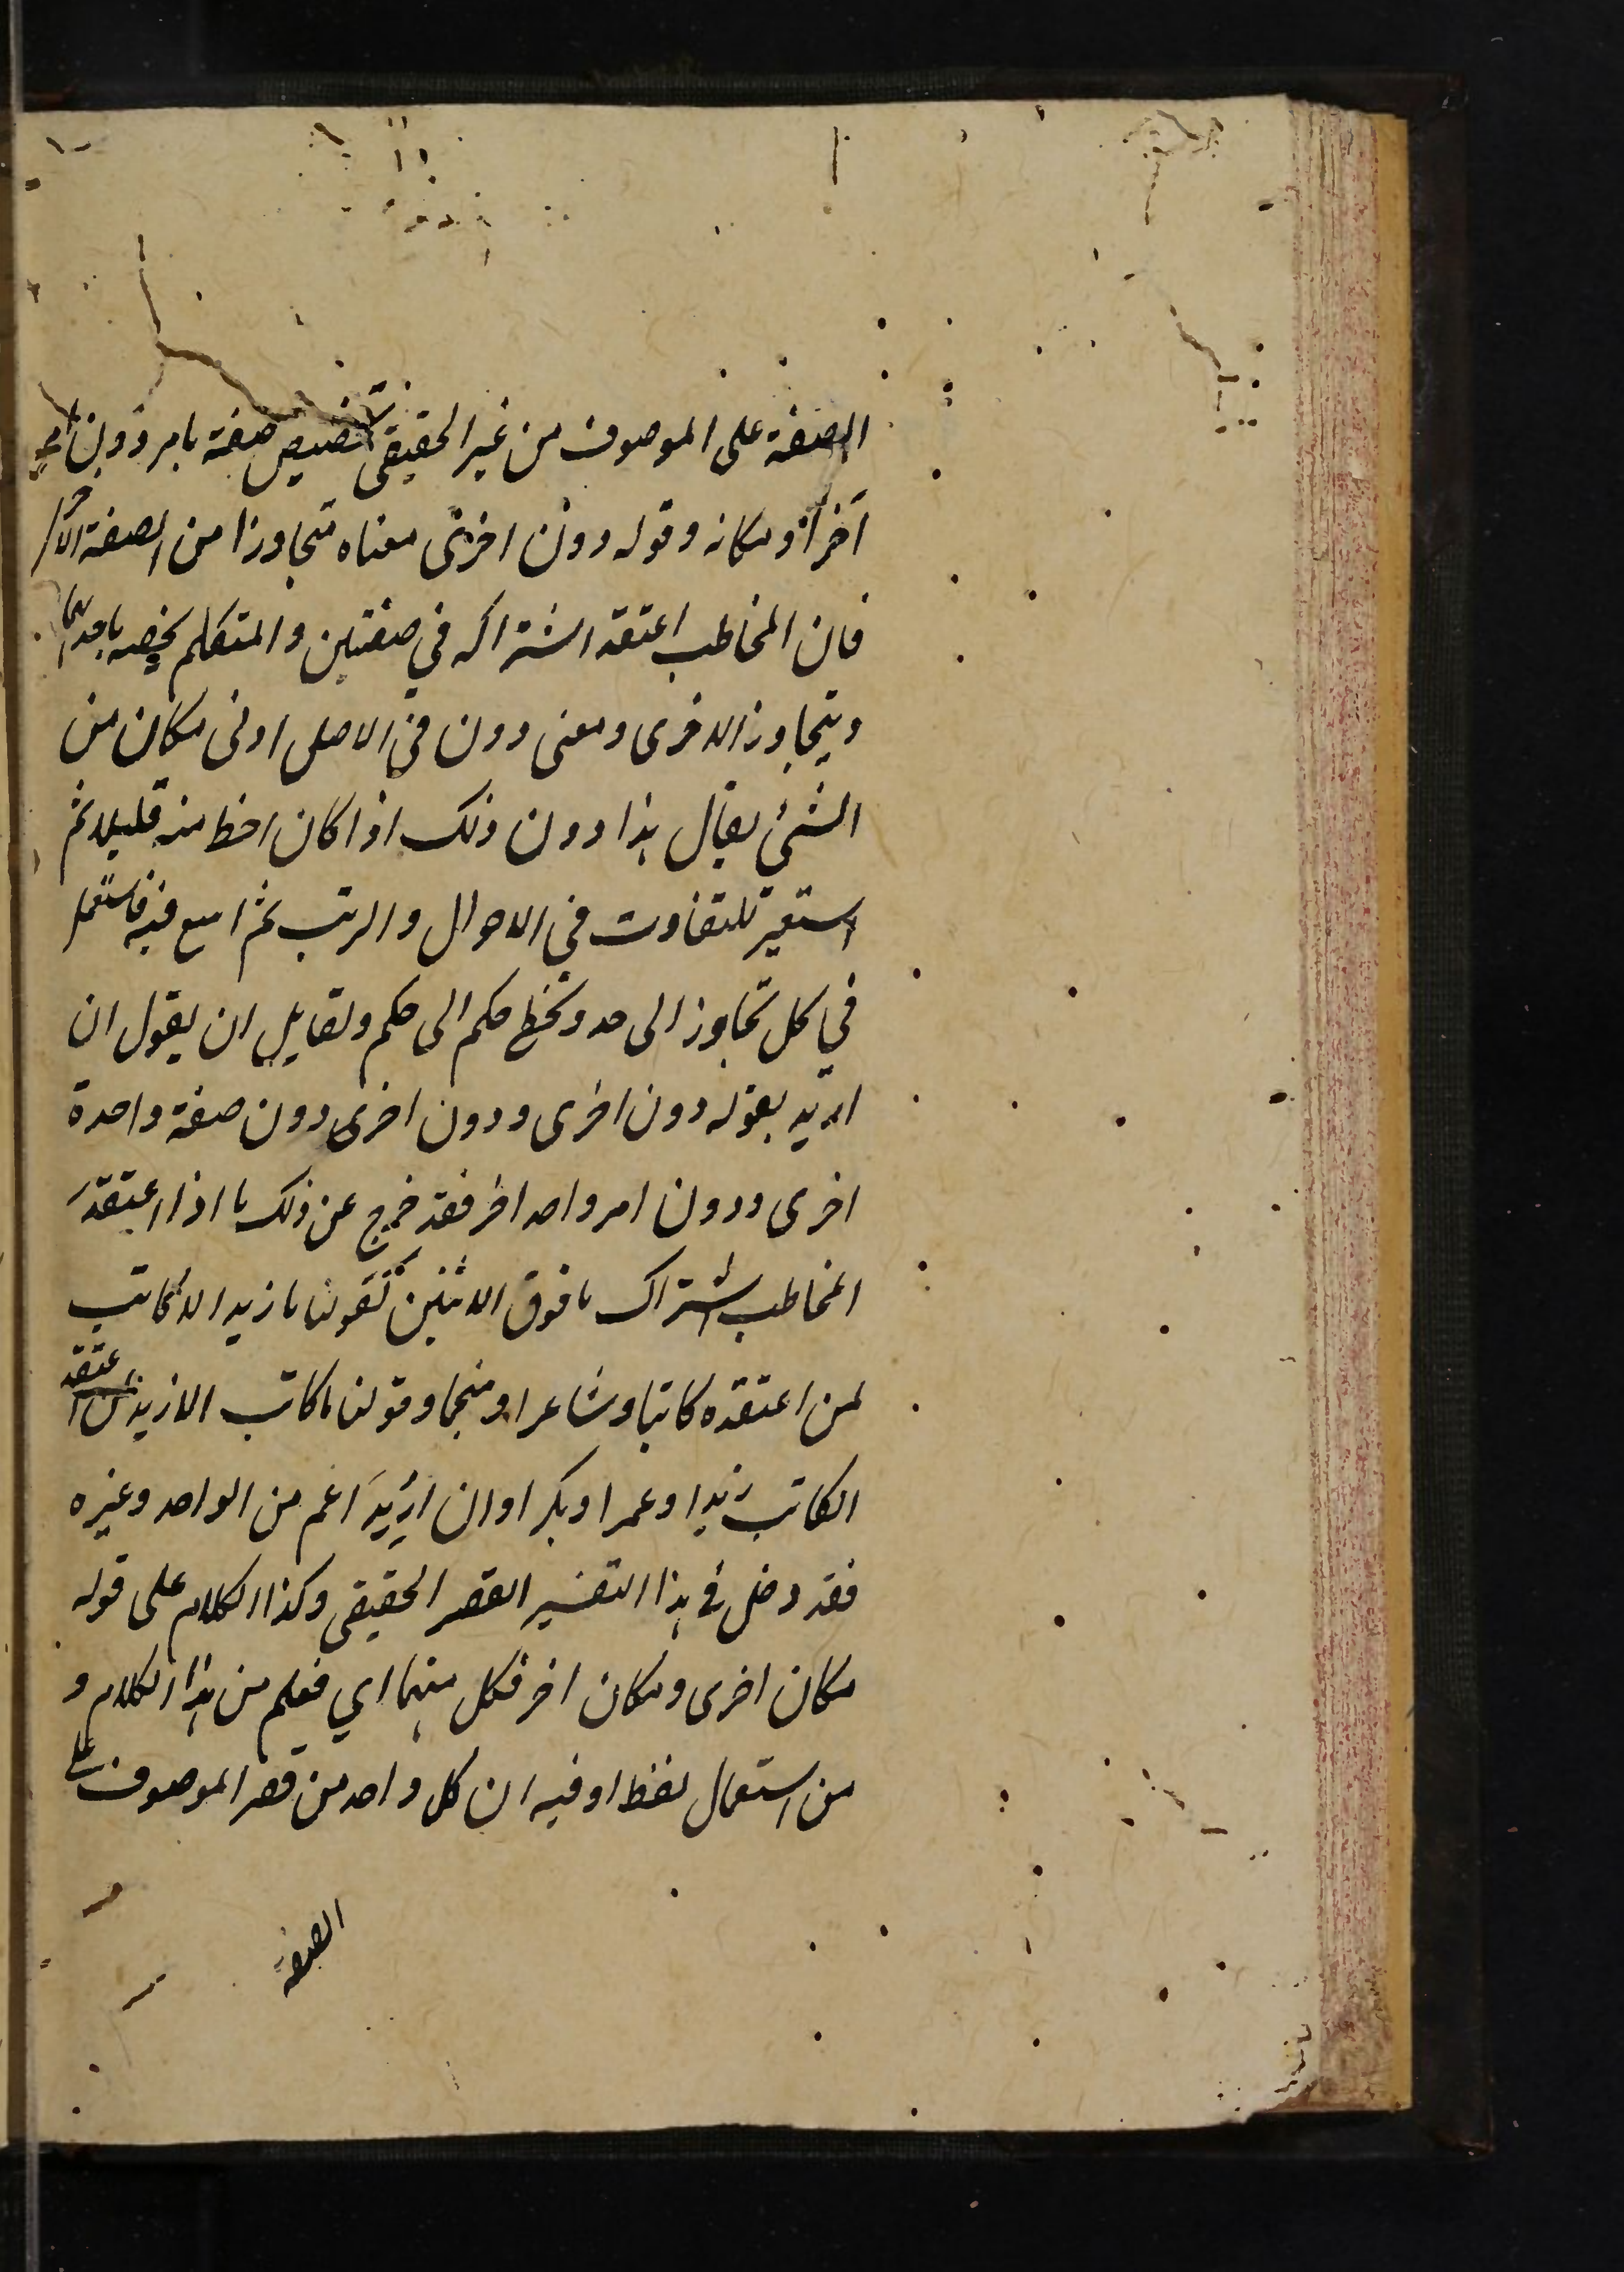 الصفة على الموصوف من غير الحقيقى تخصيص صفة بامر دون امر
آخر او مكانه وقوله دون اخرى معناه متجاوزا من الصفة الاخرى
فان المخاطب اعتقد اشتراكه في صفتين والمتكلم يخصه باحديهما
ويتجاوز الاخرى ومعنى دون في الاصل ادنى مكان من
الشئ يقال هذا دون ذلك اذا كان احط منه قليلا ثم
استعير للتفاوت في الاحوال والرتب ثم اتسع فيه فاستعمل
في كل تجاوز الى حد وتخطى حكم الى حكم ولقايل ان يقول ان
اريد بقوله دون اخرى ودون اخر دون صفة واحدة
اخرى ودون امر واحد اخر فقد خرج عن ذلك ما اذا اعتقد
المخاطب اشتراك ما فوق الاثنين كقولنا ما زيد الا كاتب
لمن اعتقده كاتبا وشاعرا ومنجما وقولنا ما كاتب الا زيد لمن اعتقد
الكاتب زيدا وعمرا وبكرا وان اريد اعم من الواحد وغيره
فقد دخل في هذا التفسير القصر الحقيقى وكذا الكلام على قوله
مكان اخرى ومكان اخر فكل منهما اي فعلم من هذا الكلام و
من استعمال لفظ او فيه ان كل واحد من قصر الموصوف على
الصفة